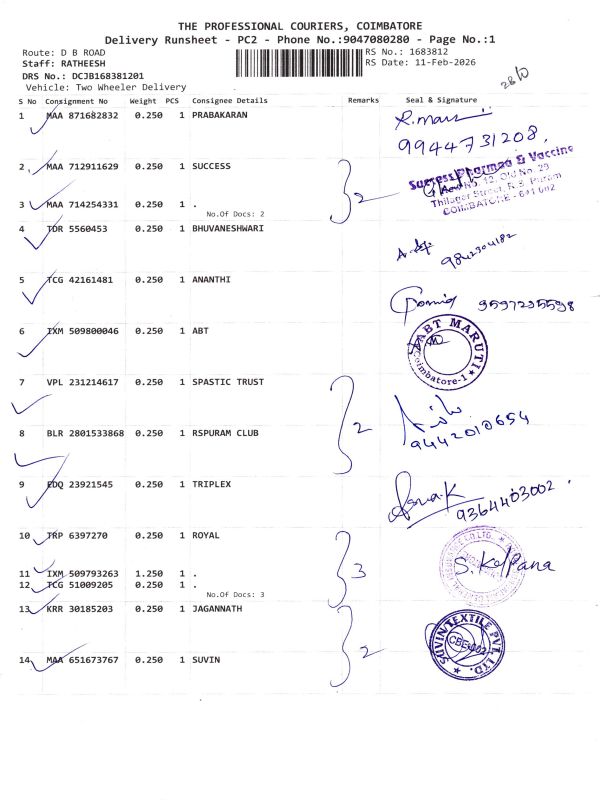 THE PROFESSIONAL COURIERS, COIMBATORE
Delivery Runsheet - PC2 - Phone No.:9047080280 - Page No.:1
Route: D B ROAD
RS No.: 1683812
Staff: RATHEESH
RS Date: 11-Feb-2026
DRS No.: DCJB168381201
Vehicle: Two Wheeler Delivery
S No Consignment No Weight PCS Consignee Details Remarks Seal & Signature
1 MAA 871682832 0.250 1 PRABAKARAN
9944731208
2 MAA 712911629 0.250 1 SUCCESS
2
Success Pharma & Vaccine
Thilagar Street, R.S. Puram
COIMBATORE - 641 002
3 MAA 714254331 0.250 1 .
No.Of Docs: 2
4 TOR 5560453 0.250 1 BHUVANESHWARI
9842304182
5 TCG 42161481 0.250 1 ANANTHI
9597235598
6 IXM 509800046 0.250 1 ABT
ABT MARUTI
Coimbatore-1
7 VPL 231214617 0.250 1 SPASTIC TRUST
2
9442010654
8 BLR 2801533868 0.250 1 RSPURAM CLUB
9 EDQ 23921545 0.250 1 TRIPLEX
9364403002
10 TRP 6397270 0.250 1 ROYAL
3
S. Kalpana
11 IXM 509793263 1.250 1 .
12 TCG 51009205 0.250 1 .
No.Of Docs: 3
13 KRR 30185203 0.250 1 JAGANNATH
2
SUVIN TEXTILE PVT. LTD.
CBE-002
14 MAA 651673767 0.250 1 SUVIN